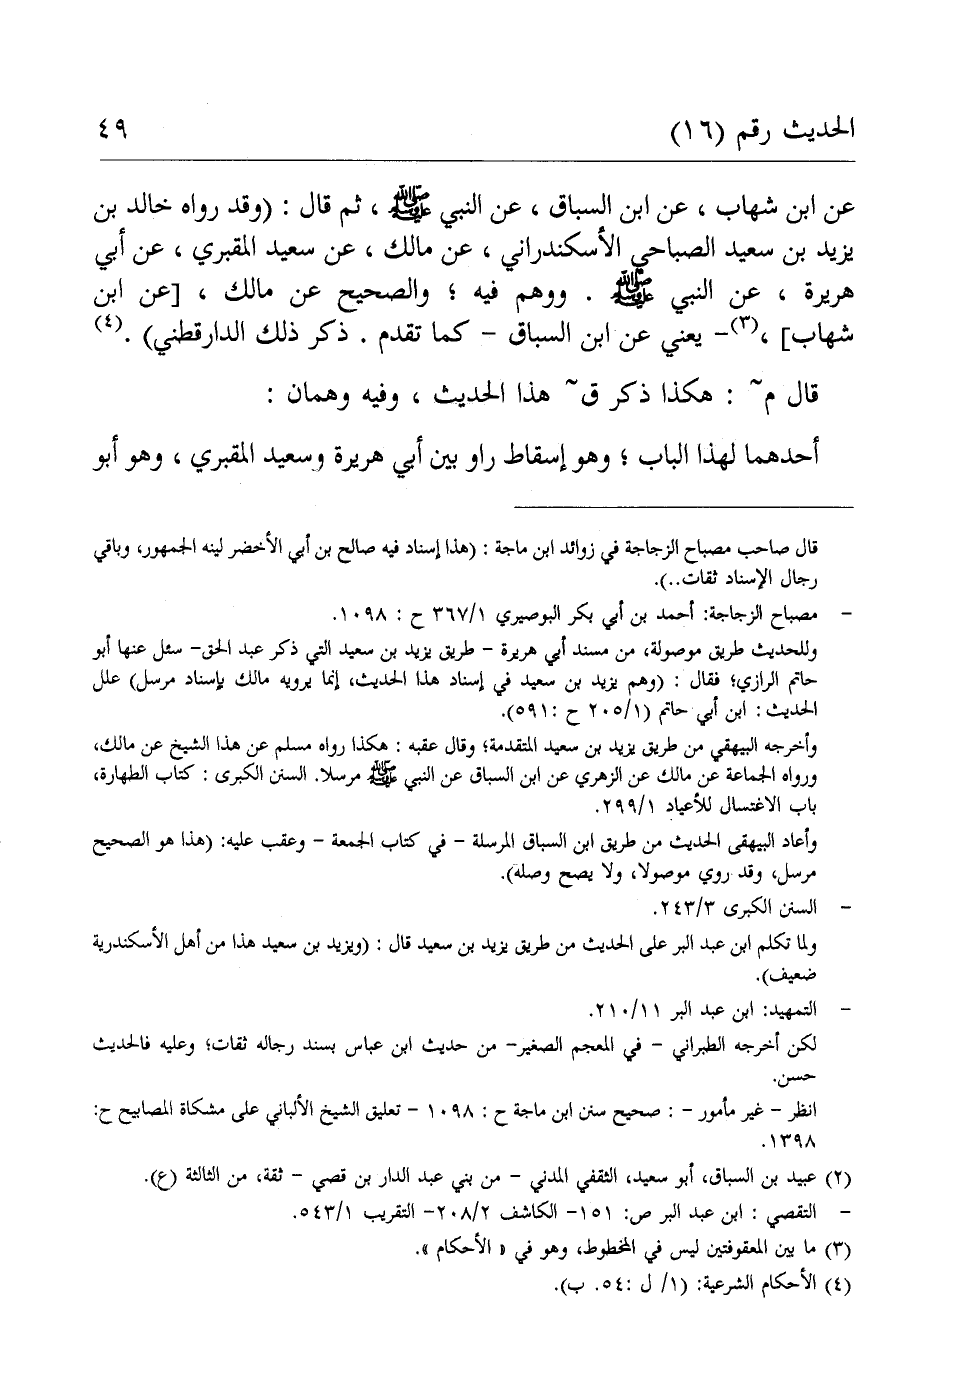 الحديث رقم (١٦) ٤٩
عن ابن شهاب ، عن ابن السباق ، عن النبي ﷺ ، ثم قال : (وقد رواه خالد بن
يزيد بن سعيد الصباحي الأسكندراني ، عن مالك ، عن سعيد المقبري ، عن أبي
هريرة ، عن النبي ﷺ . ووهم فيه ؛ والصحيح عن مالك ، [عن ابن
شهاب] ،(٣)- يعني عن ابن السباق - كما تقدم . ذكر ذلك الدارقطني) .(٤)
قال م~ : هكذا ذكر ق~ هذا الحديث ، وفيه وهمان :
أحدهما لهذا الباب ؛ وهو إسقاط راو بين أبي هريرة وسعيد المقبري ، وهو أبو
قال صاحب مصباح الزجاجة في زوائد ابن ماجة : (هذا إسناد فيه صالح بن أبي الأخضر لينه الجمهور، وباقي
رجال الإسناد ثقات..).
- مصباح الزجاجة: أحمد بن أبي بكر البوصيري ٣٦٧/١ ح : ١٠٩٨.
وللحديث طريق موصولة، من مسند أبي هريرة - طريق يزيد بن سعيد التي ذكر عبد الحق- سئل عنها أبو
حاتم الرازي؛ فقال : (وهم يزيد بن سعيد في إسناد هذا الحديث، إنما يرويه مالك بإسناد مرسل) علل
الحديث : ابن أبي حاتم (٢٠٥/١ ح :٥٩١).
وأخرجه البيهقي من طريق يزيد بن سعيد المتقدمة؛ وقال عقبه : هكذا رواه مسلم عن هذا الشيخ عن مالك،
ورواه الجماعة عن مالك عن الزهري عن ابن السباق عن النبي ﷺ مرسلا. السنن الكبرى : كتاب الطهارة،
باب الاغتسال للأعياد ٢٩٩/١.
وأعاد البيهقى الحديث من طريق ابن السباق المرسلة - في كتاب الجمعة - وعقب عليه: (هذا هو الصحيح
مرسل، وقد روي موصولا، ولا يصح وصله).
- السنن الكبرى ٢٤٣/٣.
ولما تكلم ابن عبد البر على الحديث من طريق يزيد بن سعيد قال : (ويزيد بن سعيد هذا من أهل الأسكندرية
ضعيف).
- التمهيد: ابن عبد البر ٢١٠/١١.
لكن أخرجه الطبراني - في المعجم الصغير- من حديث ابن عباس بسند رجاله ثقات؛ وعليه فالحديث
حسن.
انظر - غير مأمور - : صحيح سنن ابن ماجة ح : ١٠٩٨ - تعليق الشيخ الألباني على مشكاة المصابيح ح:
١٣٩٨.
(٢) عبيد بن السباق، أبو سعيد، الثقفي المدني - من بني عبد الدار بن قصي - ثقة، من الثالثة (ع).
- التقصي : ابن عبد البر ص: ١٥١- الكاشف ٢٠٨/٢- التقريب ٥٤٣/١.
(٣) ما بين المعقوفتين ليس في المخطوط، وهو في « الأحكام ».
(٤) الأحكام الشرعية: (١/ ل :٥٤. ب).